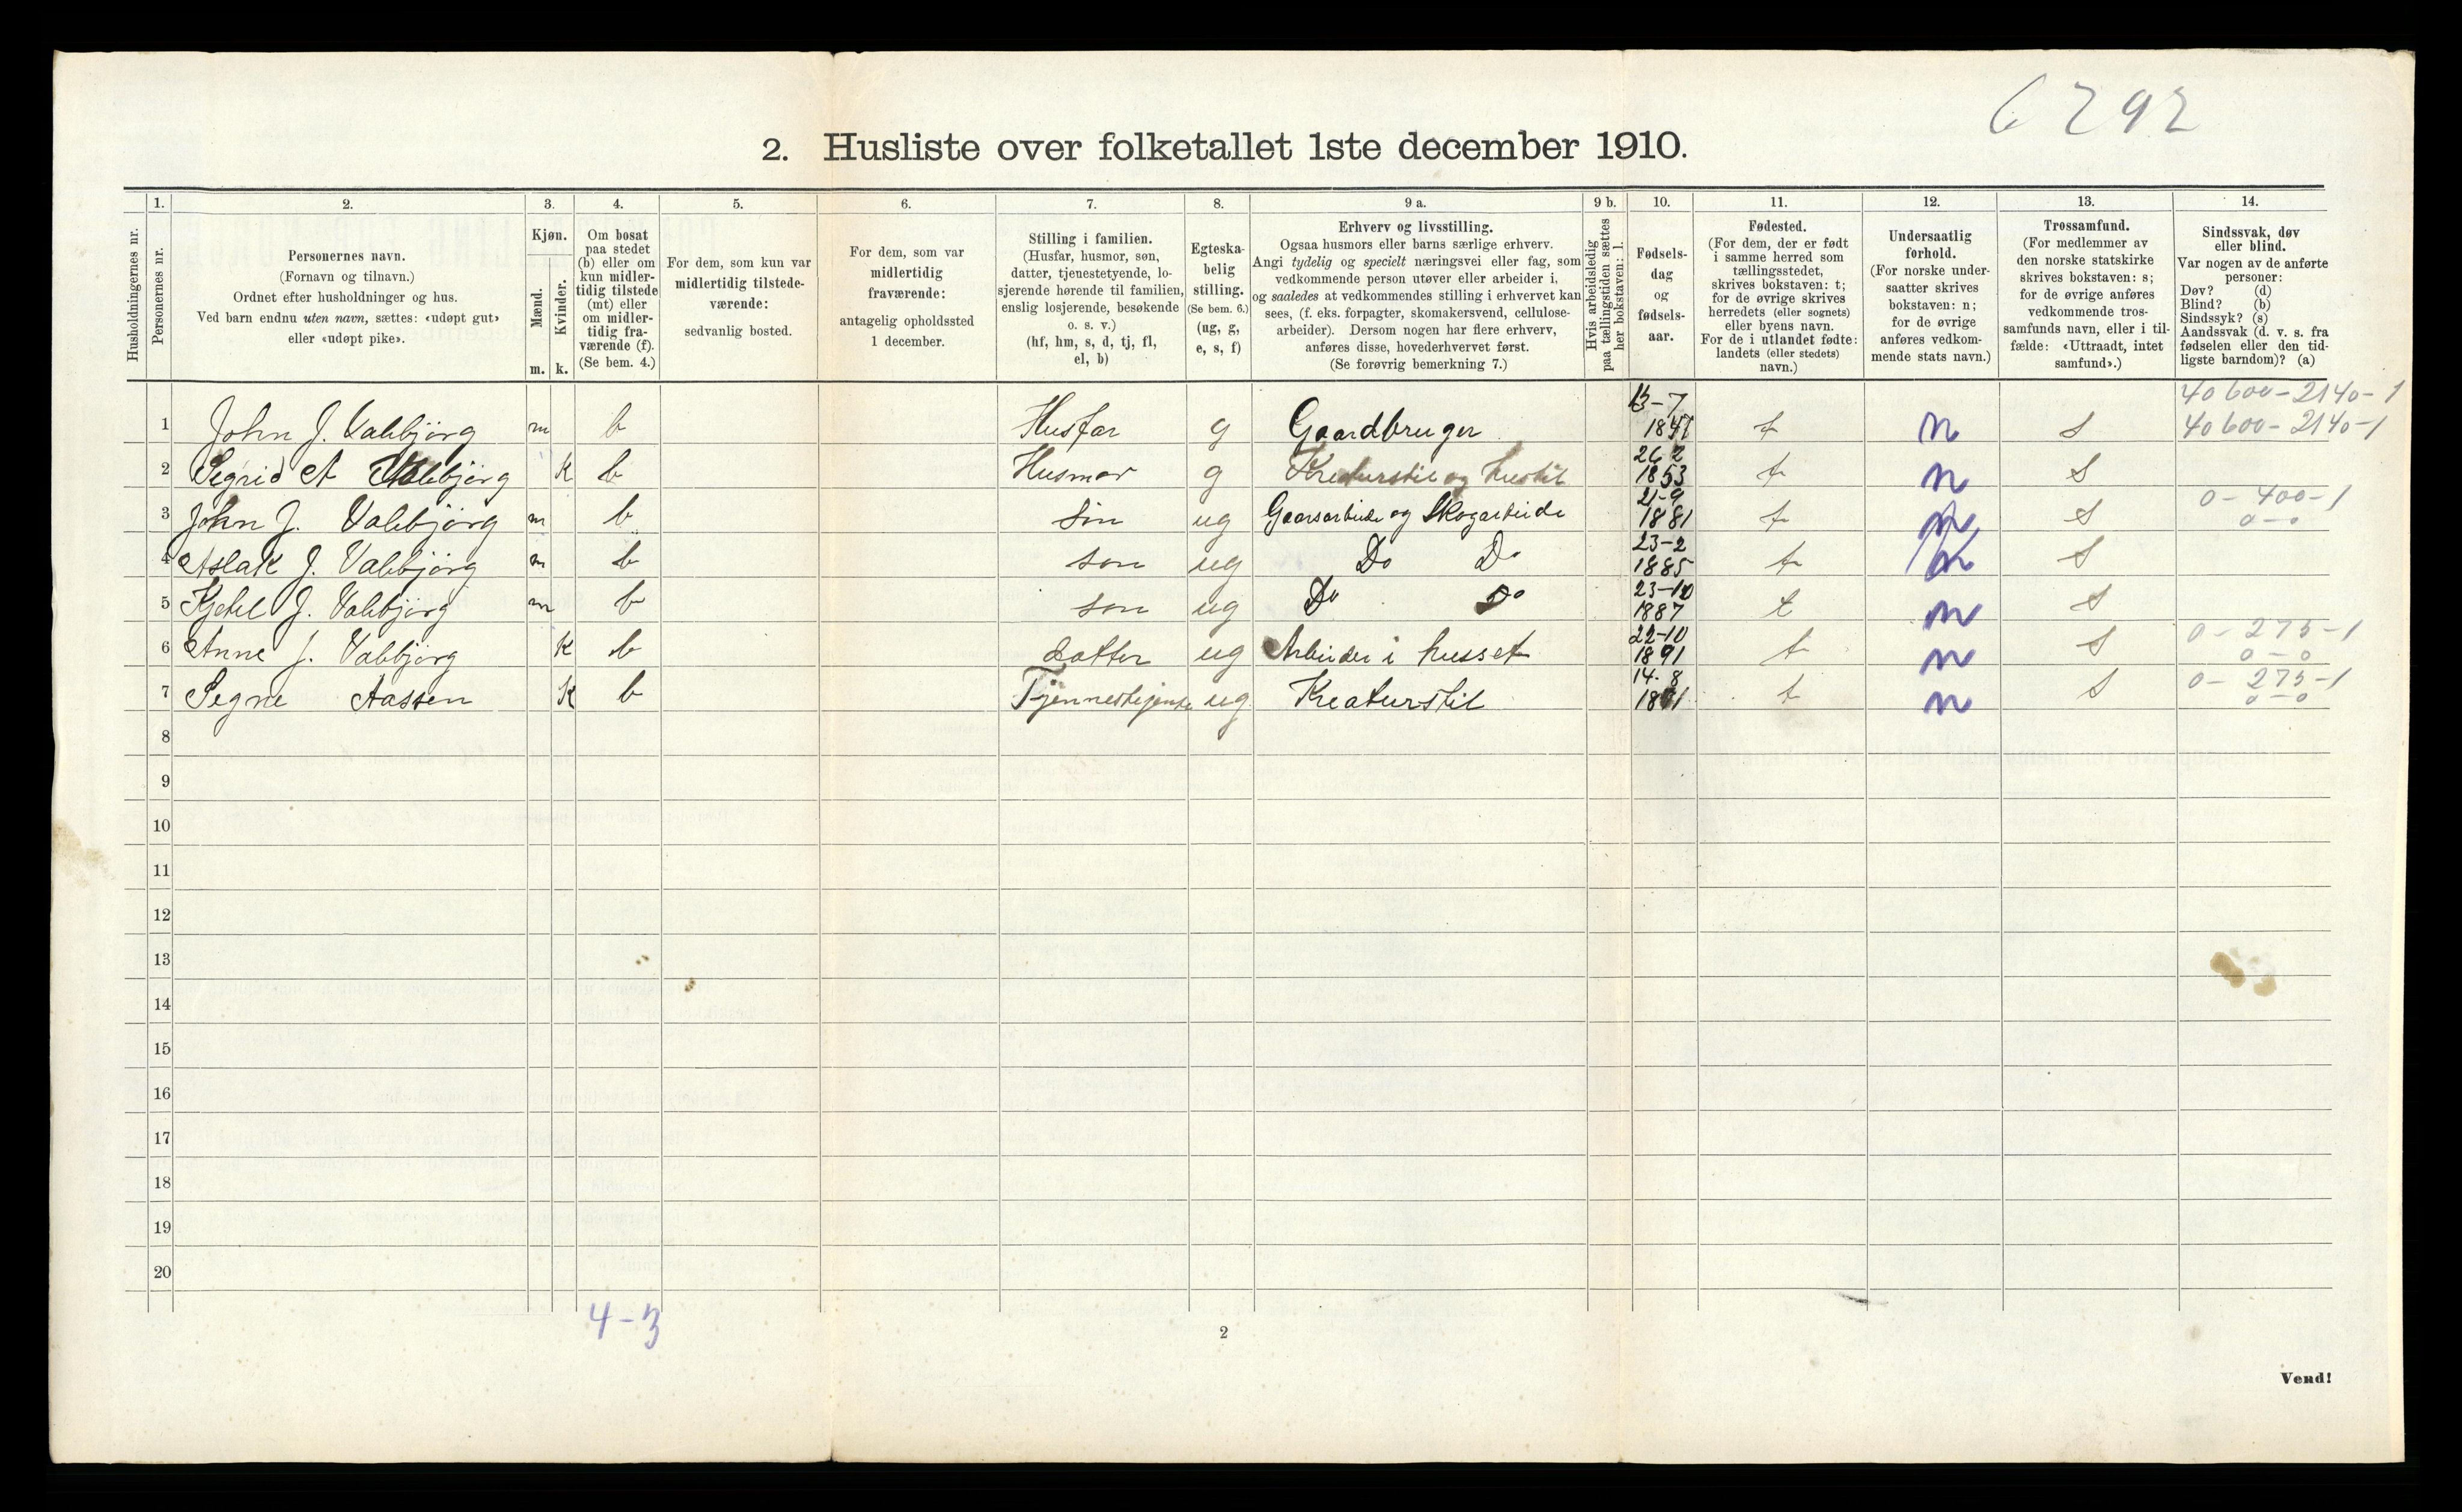 6292
2. Husliste over folketallet 1ste december 1910.
Husholdningernes nr.
1.
Personernes nr.
2.
Personernes navn.
(Fornavn og tilnavn.)
Ordnet efter husholdninger og hus.
Ved barn endnu uten navn, sættes: «udøpt gut»
eller «udøpt pike».
3.
Kjøn.
Mænd.
Kvinder.
m. k.
4.
Om bosat
paa stedet
(b) eller om
kun midler-
tidig tilstede
(mt) eller
om midler-
tidig fra-
værende (f).
(Se bem. 4.)
5.
For dem, som kun var
midlertidig tilstede-
værende:
sedvanlig bosted.
6.
For dem, som var
midlertidig
fraværende:
antagelig opholdssted
1 december.
7.
Stilling i familien.
(Husfar, husmor, søn,
datter, tjenestetyende, lo-
sjerende hørende til familien,
enslig losjerende, besøkende
o. s. v.)
(hf, hm, s, d, tj, fl,
el, b)
8.
Egteska-
belig
stilling.
(Se bem. 6.)
(ug, g,
e, s, f)
9 a.
Erhverv og livsstilling.
Ogsaa husmors eller barns særlige erhverv.
Angi tydelig og specielt næringsvei eller fag, som
vedkommende person utøver eller arbeider i,
og saaledes at vedkommendes stilling i erhvervet kan
sees, (f. eks. forpagter, skomakersvend, cellulose-
arbeider). Dersom nogen har flere erhverv,
anføres disse, hovederhvervet først.
(Se forøvrig bemerkning 7.)
9 b.
Hvis arbeidsledig
paa tællingstiden sættes
her bokstaven: l.
10.
Fødsels-
dag
og
fødsels-
aar.
11.
Fødested.
(For dem, der er født
i samme herred som
tællingsstedet,
skrives bokstaven: t;
for de øvrige skrives
herredets (eller sognets)
eller byens navn.
For de i utlandet fødte:
landets (eller stedets)
navn.)
12.
Undersaatlig
forhold.
(For norske under-
saatter skrives
bokstaven: n;
for de øvrige
anføres vedkom-
mende stats navn.)
13.
Trossamfund.
(For medlemmer av
den norske statskirke
skrives bokstaven: s;
for de øvrige anføres
vedkommende tros-
samfunds navn, eller i til-
fælde: «Uttraadt, intet
samfund».)
14.
Sindssvak, døv
eller blind.
Var nogen av de anførte
personer:
Døv? (d)
Blind? (b)
Sindssyk? (s)
Aandssvak (d. v. s. fra
fødselen eller den tid-
ligste barndom)? (a)
40600-2140-1
1 John J. Valebjörg m b Husfar g Gaardbruger 13-7 1847 t n S 40600-2140-1
2 Segrid A Valebjörg K b Husmor g Kreaturstil og hustil 26 2 1853 t n S
3 John J. Valebjörg m b sön ug Gaarsarbeide og Skogarbeide 21-9 1881 t n S 0-400-1
0-0
4 Aslak J. Valebjörg m b sön ug Do Do 23-2 1885 t n S
5 Kjetel J. Valebjörg m b sön ug Do Do 23-10 1887 t n S
6 Anne J. Valebjörg K b datter ug Arbeider i husset 22-10 1891 t n S 0-275-1
0-0
7 Segne Aassen K b Tjennestejente ug Kreaturstil 14-8 t n S 0-275-1
0-0
8
9
10
11
12
13
14
15
16
17
18
19
20
4-3
2
Vend!